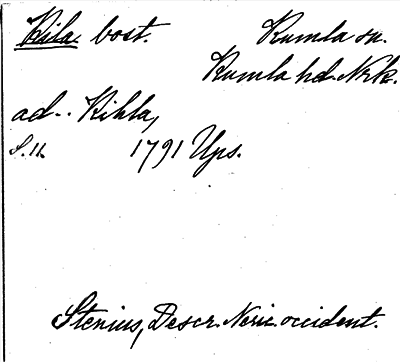 Kila. bost. Kumla sn.
Kumla hd. Nrk.
ad.. Kihla,
S.11. 1791 Ups.
Stenius, Descr. Neric. occident.